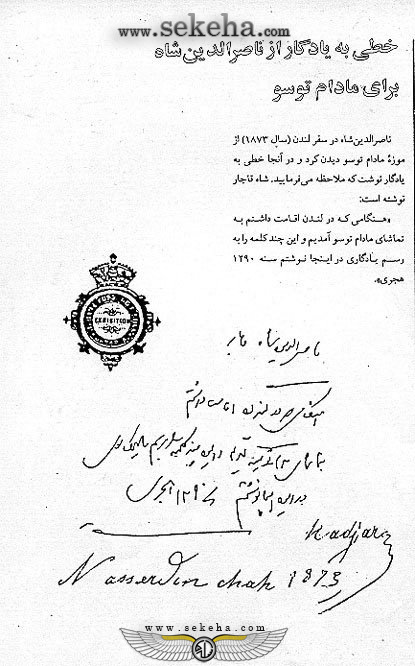 www.sekeha.com
خطی به یادگار از ناصرالدین‌شاه
برای مادام توسو
ناصرالدین‌شاه در سفر لندن (سال ۱۸۷۳) از
موزهٔ مادام توسو دیدن کرد و در آنجا خطی به
یادگار نوشت که ملاحظه می‌فرمایید. شاه قاجار
نوشته است:
«هنگامی که در لندن اقامت داشتم به
تماشای مادام توسو آمدیم و این چند کلمه را به
رسم یادگاری در اینجا نوشتم سنه ۱۲۹۰
هجری».
EXHIBITION
ناصرالدین شاه قاجار
در لندن اقامت داشتم
نوشتم
Kadjar
Nasserdin chah 1873
www.sekeha.com